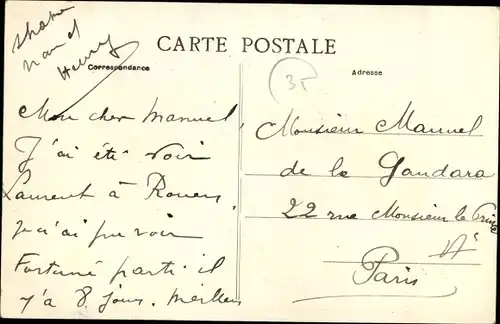 CARTE POSTALE
Correspondance
Adresse
35
Mon cher Manuel,
J'ai été voir
Laurent à Rouen,
je n'ai pu voir
Fortuné parti il
y'a 8 jours.
Monsieur Manuel
de la Gandara
22 rue Monsieur le Prince
Paris